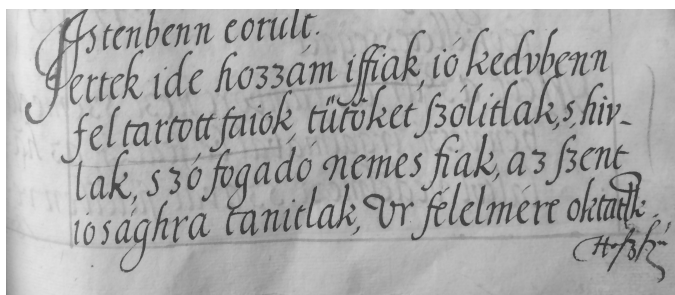 Istenbenn eorult.
Jertek ide hozzám iffiak, ió kedvbenn
feltartott faiok, tűtöket szólitlak, s, hiv-
lak, szó fogadó nemes fiak, az szent
iosághra tanitlak, Ur félelmére oktatlk.